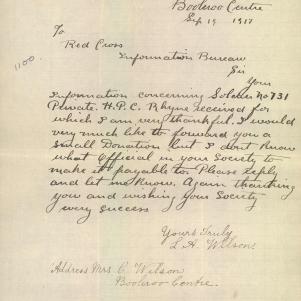 Booleroo Centre
Sep 19 1917
To
Red Cross
1100
Information Bureau
Sir
Your
Information concerning Soldier No 731
Private H.P.C. Rhyne received for
which I am very thankful. I would
very much like to forward you a
Small Donation but I dont know
what Official in your Society to
make it payable to Please reply
and let me know. Again thanking
you and wishing your Society
every success
Yours Truly
L. A. Wilson
Address Mrs C. Wilson
Booleroo Centre.